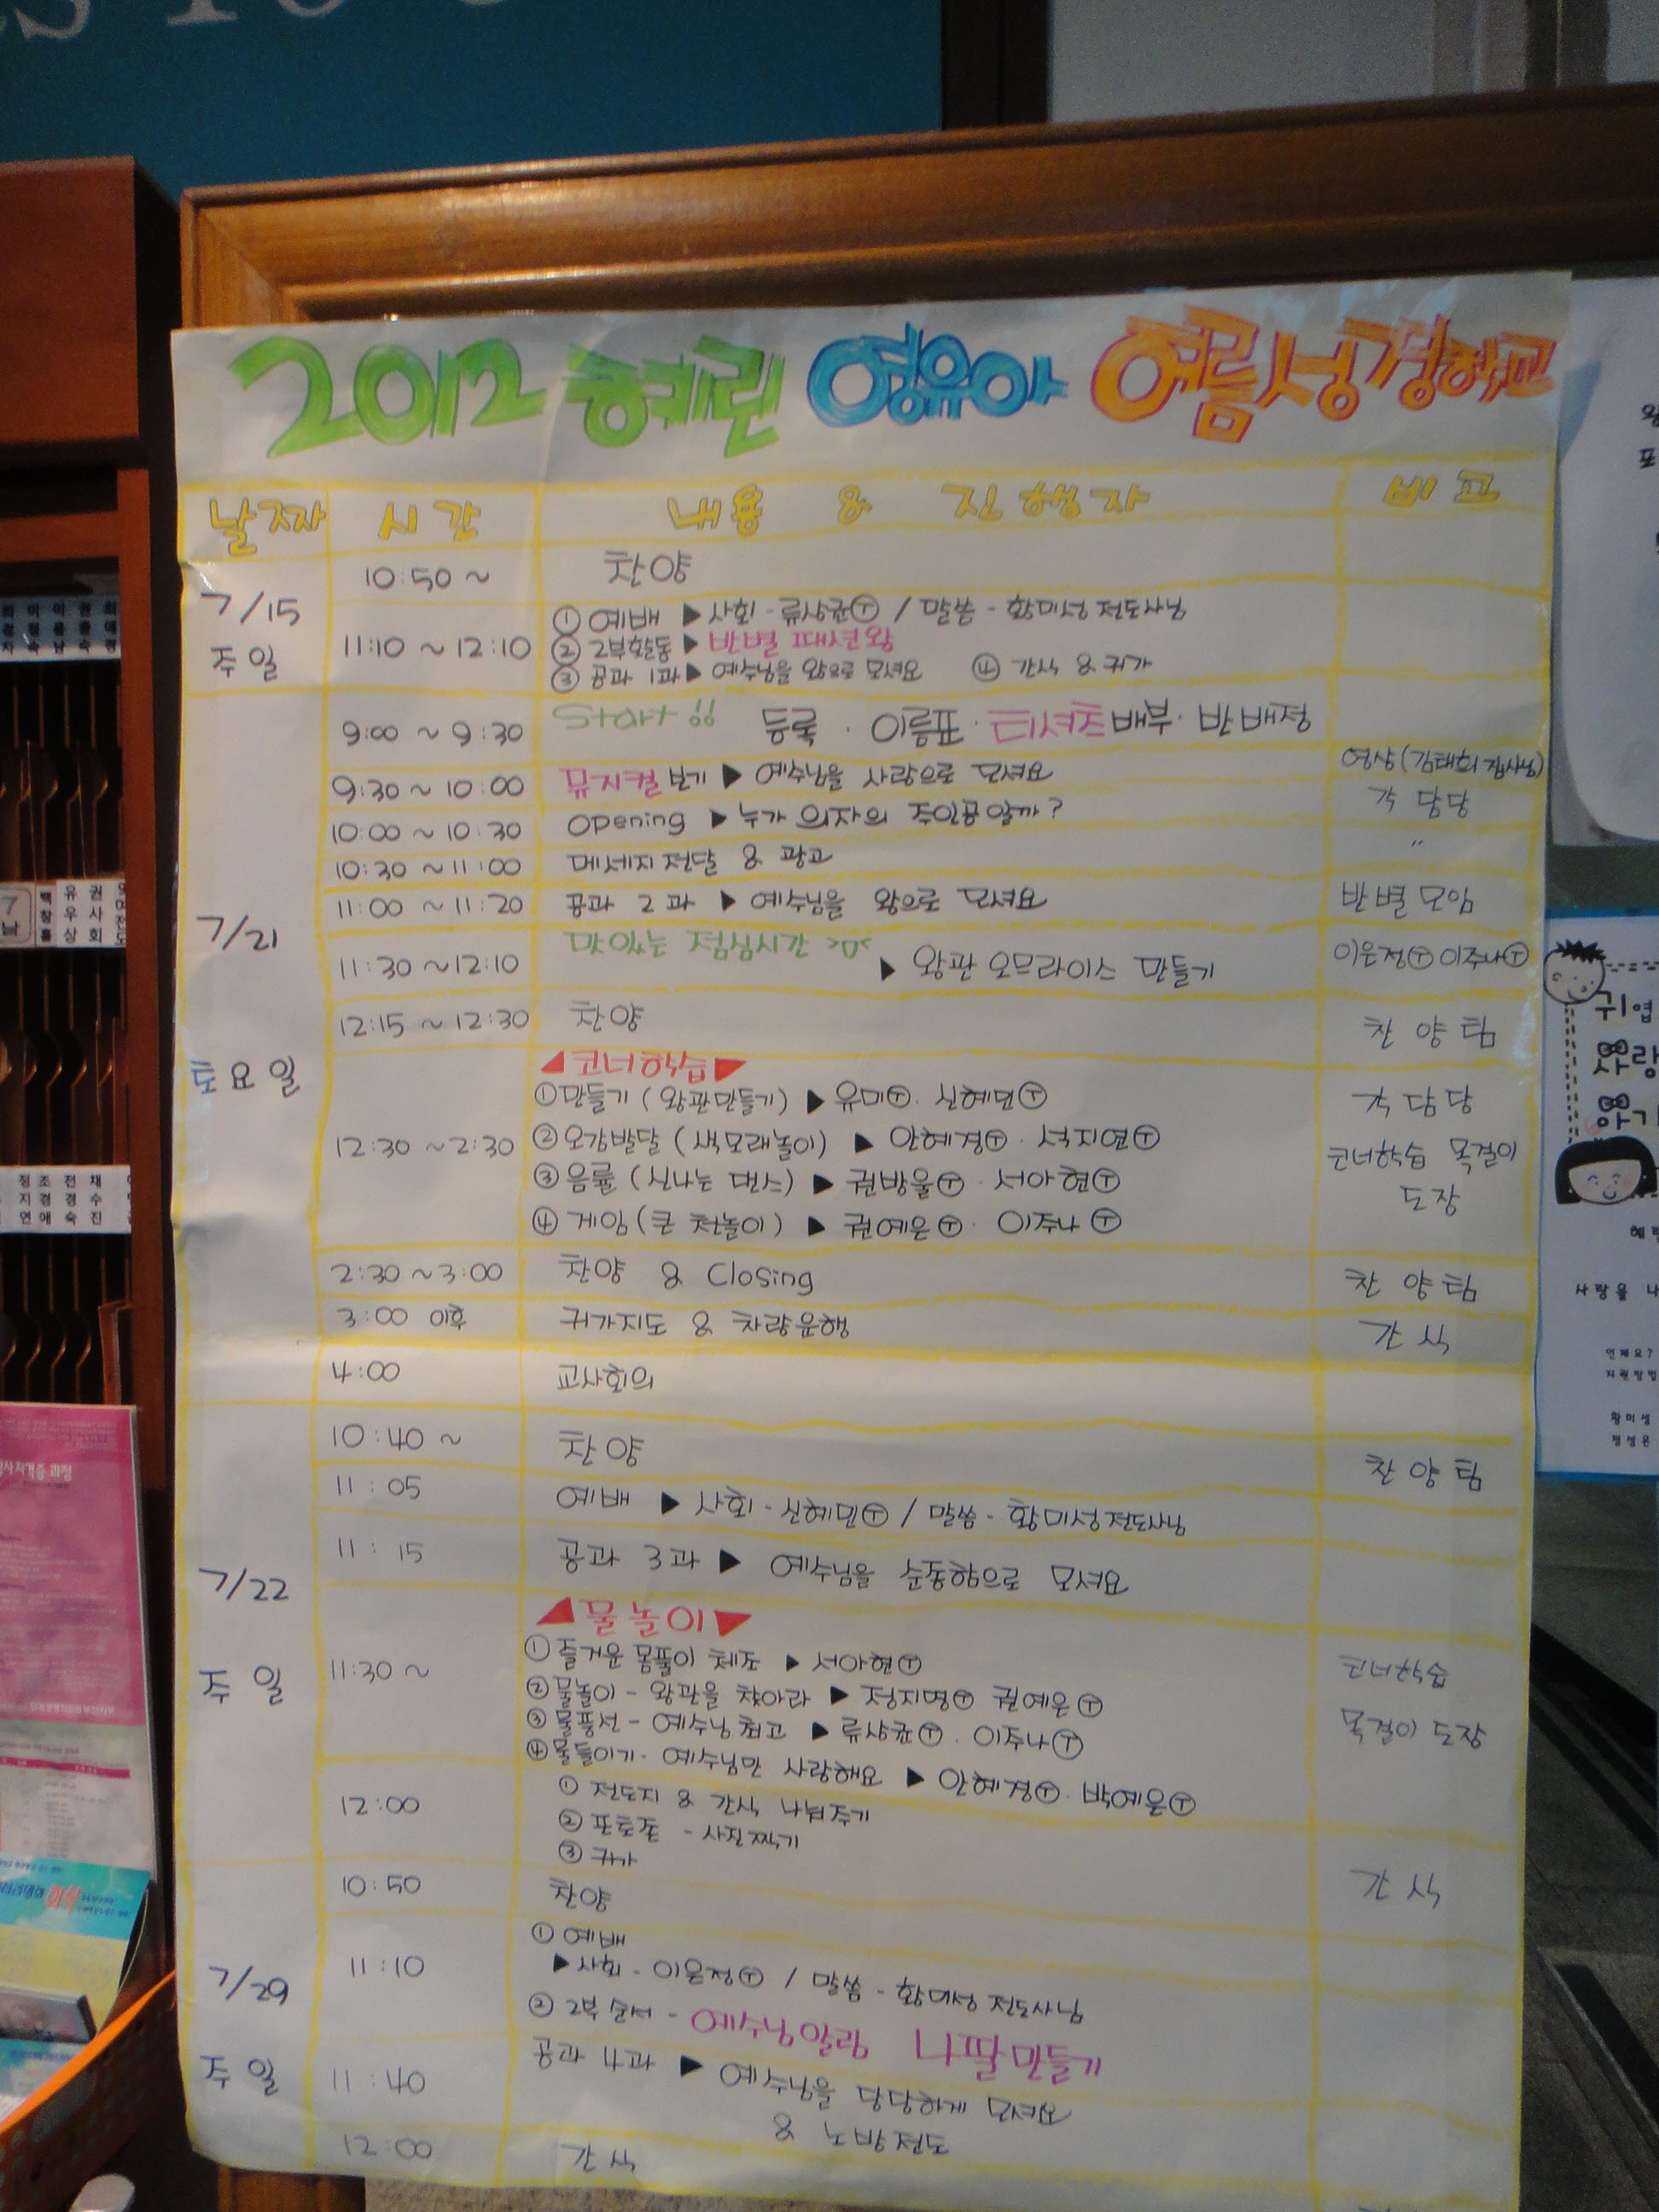 2012 혜린 영유아 여름성경학교
날짜 시간 내용 & 진행자 비고
7/15 주일
10:50 ~ 찬양
11:10 ~ 12:10 ① 예배 ▶ 사회 - 류상균Ⓣ / 말씀 - 황미성 전도사님
② 2부활동 ▶ 반별 패션왕
③ 공과 1과 ▶ 예수님을 왕으로 모셔요 ④ 간식 & 귀가
7/21 토요일
9:00 ~ 9:30 Start !! 등록 · 이름표 · 티셔츠 배부 · 반 배정
9:30 ~ 10:00 뮤지컬 보기 ▶ 예수님을 사랑으로 모셔요 영상(김태희 집사님)
10:00 ~ 10:30 Opening ▶ 누가 의자의 주인공일까? 각 담당
10:30 ~ 11:00 메세지 전달 & 광고 "
11:00 ~ 11:20 공과 2과 ▶ 예수님을 왕으로 모셔요 반별모임
11:30 ~ 12:10 맛있는 점심시간 ▶ 왕관 오므라이스 만들기 이은정Ⓣ 이주나Ⓣ
12:15 ~ 12:30 찬양 찬양팀
12:30 ~ 2:30 ◀코너학습▶
① 만들기 (왕관만들기) ▶ 유미Ⓣ · 신혜민Ⓣ 각 담당
② 오감발달 (색모래놀이) ▶ 안혜경Ⓣ · 석지연Ⓣ 코너학습 목걸이
③ 음률 (신나는 댄스) ▶ 권방울Ⓣ · 서아현Ⓣ 도장
④ 게임 (큰 천놀이) ▶ 권예은Ⓣ · 이주나Ⓣ
2:30 ~ 3:00 찬양 & Closing 찬양팀
3:00 이후 귀가지도 & 차량운행 간식
4:00 교사회의
7/22 주일
10:40 ~ 찬양 찬양팀
11:05 예배 ▶ 사회 - 신혜민Ⓣ / 말씀 - 황미성 전도사님
11:15 공과 3과 ▶ 예수님을 순종함으로 모셔요
11:30 ~ ◀물놀이▶
① 즐거운 몸풀이 체조 ▶ 서아현Ⓣ 코너학습
② 물놀이 - 왕관을 찾아라 ▶ 정지명Ⓣ 권예은Ⓣ 목걸이 도장
③ 물풍선 - 예수님 최고 ▶ 류상균Ⓣ · 이주나Ⓣ
④ 물들이기 · 예수님만 사랑해요 ▶ 안혜경Ⓣ · 박예은Ⓣ
12:00 ① 전도지 & 간식 나눠주기
② 포토존 - 사진찍기
③ 귀가
간식
7/29 주일
10:50 찬양
11:10 ① 예배
▶ 사회 - 이은정Ⓣ / 말씀 - 황미성 전도사님
② 2부 순서 - 예수님알림 나팔만들기
11:40 공과 4과 ▶ 예수님을 당당하게 모셔요
& 노방전도
12:00 간식
귀엽
사랑
사랑을 나
언제요?
지원방법
황미성
유우상
권사회
정지연
조경애
전경숙
채수진
사자격증 과정